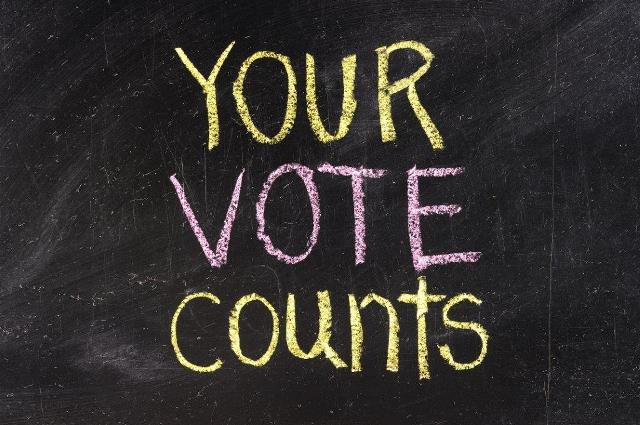 YOUR
VOTE
counts